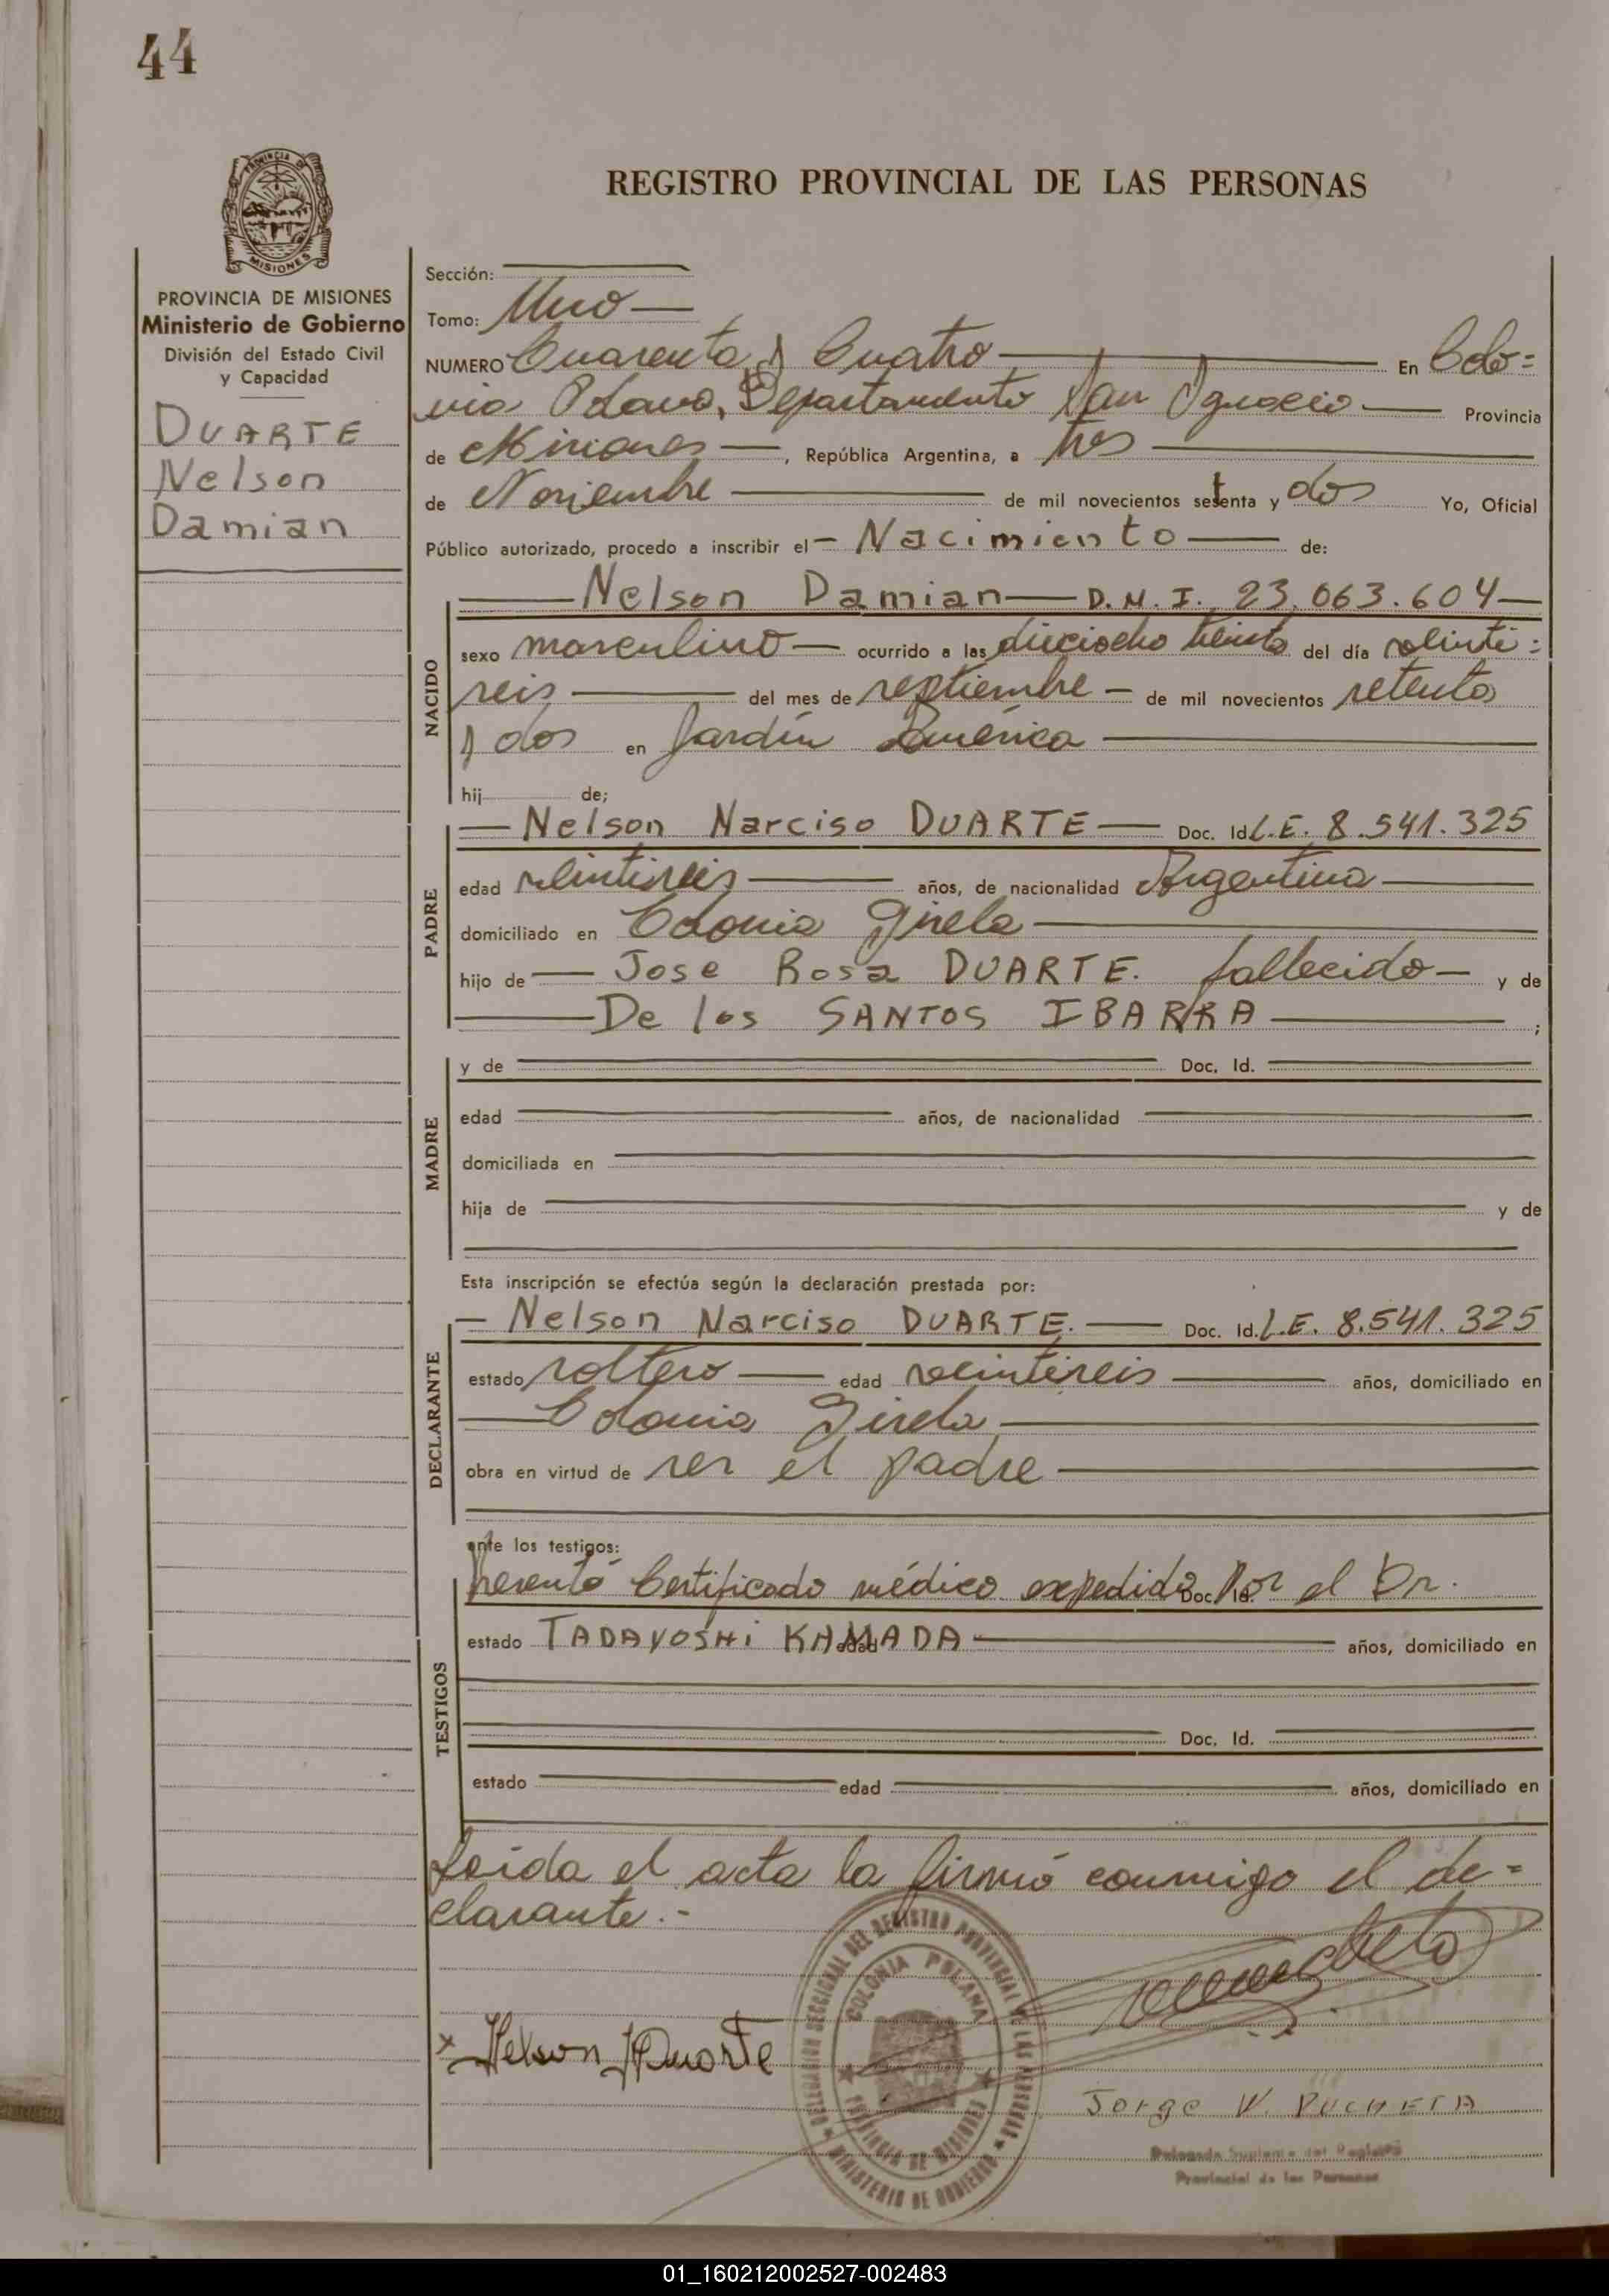 44
PROVINCIA DE
MISIONES
REGISTRO PROVINCIAL DE LAS PERSONAS
PROVINCIA DE MISIONES
Ministerio de Gobierno
División del Estado Civil
y Capacidad
DUARTE
Nelson
Damian
Sección:
Tomo: Uno
NUMERO Cuarenta y Cuatro En Colo=
nia Polana, Departamento San Ignacio Provincia
de Misiones, República Argentina, a tres
de Noviembre de mil novecientos setenta y dos Yo, Oficial
Público autorizado, procedo a inscribir el - Nacimiento de:
NACIDO
Nelson Damian D.N.I. 23.063.604
sexo masculino ocurrido a las dieciocho treinta del día veinti=
seis del mes de septiembre de mil novecientos setenta
y dos en Jardín América
hij de;
PADRE
Nelson Narciso DUARTE Doc. Id L.E. 8.541.325
edad veintiseis años, de nacionalidad Argentina
domiciliado en Colonia Gisela
hijo de Jose Rosa DUARTE. fallecido y de
De los SANTOS IBARRA ;
MADRE
y de Doc. Id.
edad años, de nacionalidad
domiciliada en
hija de y de
Esta inscripción se efectúa según la declaración prestada por:
DECLARANTE
Nelson Narciso DUARTE. Doc. Id. L.E. 8.541.325
estado soltero edad veintiseis años, domiciliado en
Colonia Gisela
obra en virtud de ser el padre
ante los testigos:
TESTIGOS
Presentó Certificado médico expedido Doc. Id. por el Dr.
estado TADAYOSHI KAMADA edad años, domiciliado en
Doc. Id.
estado edad años, domiciliado en
Leída el acta la firmó conmigo el de=
clarante.-
DELEGACION SECCIONAL DEL REGISTRO PROVINCIAL DE LAS PERSONAS
COLONIA POLANA
PROVINCIA DE MISIONES
MINISTERIO DE GOBIERNO
x Nelson N Duarte
Jorge V. PUCHETA
Delegado Suplente del Registro
Provincial de las Personas
01_160212002527-002483